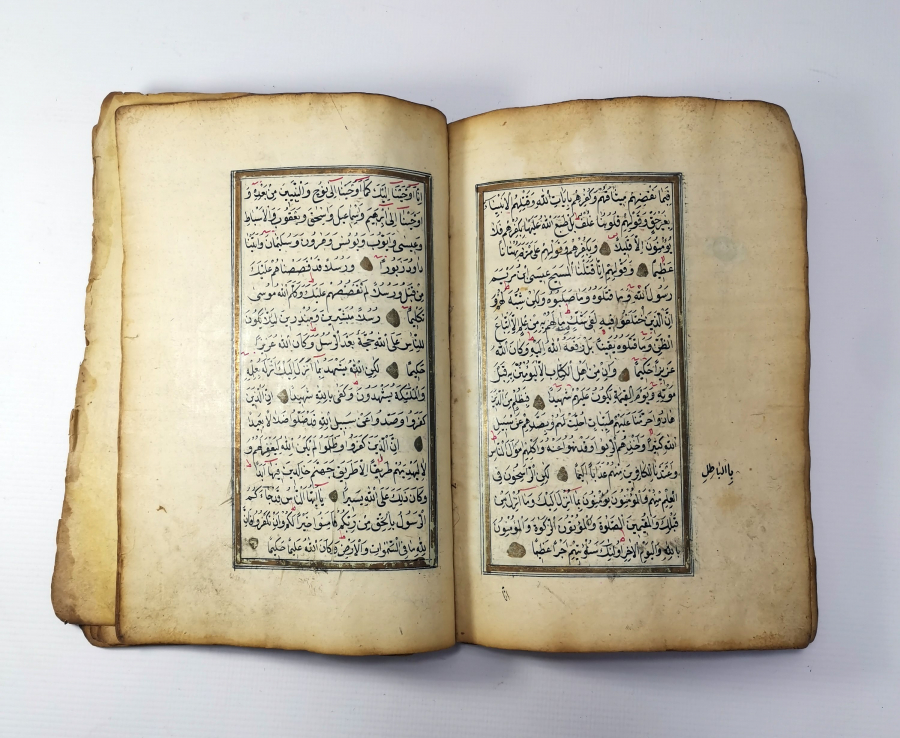 فبما نقضهم ميثاقهم وكفرهم بايات الله وقتلهم الانبياء
بغير حق وقولهم قلوبنا غلف بل طبع الله عليها بكفرهم فلا
يؤمنون الا قليلا وبكفرهم وقولهم على مريم بهتانا
عظيما وقولهم انا قتلنا المسيح عيسى ابن مريم
رسول الله وما قتلوه وما صلبوه ولكن شبه لهم و
ان الذين اختلفوا فيه لفي شك منه ما لهم به من علم الا اتباع
الظن وما قتلوه يقينا بل رفعه الله اليه وكان الله
عزيزا حكيما وان من اهل الكتاب الا ليؤمنن به قبل
موته ويوم القيمة يكون عليهم شهيدا فبظلم من الذين
هادوا حرمنا عليهم طيبات احلت لهم وبصدهم عن سبيل
الله كثيرا واخذهم الربوا وقد نهوا عنه واكلهم اموال الناس
بالباطل
واعتدنا للكافرين منهم عذابا اليما لكن الراسخون في
العلم منهم والمؤمنون يؤمنون بما انزل اليك وما انزل من
قبلك والمقيمين الصلوة والمؤتون الزكوة والمؤمنون
بالله واليوم الاخر اولئك سنؤتيهم اجرا عظيما
انا
انا اوحينا اليك كما اوحينا الى نوح والنبيين من بعده و
اوحينا الى ابرهيم واسماعيل واسحق ويعقوب والاسباط
وعيسى وايوب ويونس وهرون وسليمان واتينا
داود زبورا ورسلا قد قصصناهم عليك
من قبل ورسلا لم نقصصهم عليك وكلم الله موسى
تكليما رسلا مبشرين ومنذرين لئلا يكون
للناس على الله حجة بعد الرسل وكان الله عزيزا
حكيما لكن الله يشهد بما انزل اليك انزله بعلمه
والملئكة يشهدون وكفى بالله شهيدا ان الذين
كفروا وصدوا عن سبيل الله قد ضلوا ضلالا بعيدا
ان الذين كفروا وظلموا لم يكن الله ليغفر لهم و
لا ليهديهم طريقا الا طريق جهنم خالدين فيها ابدا
وكان ذلك على الله يسيرا يا ايها الناس قد جاءكم
الرسول بالحق من ربكم فامنوا خيرا لكم وان تكفروا فان
لله ما في السموات والارض وكان الله عليما حكيما